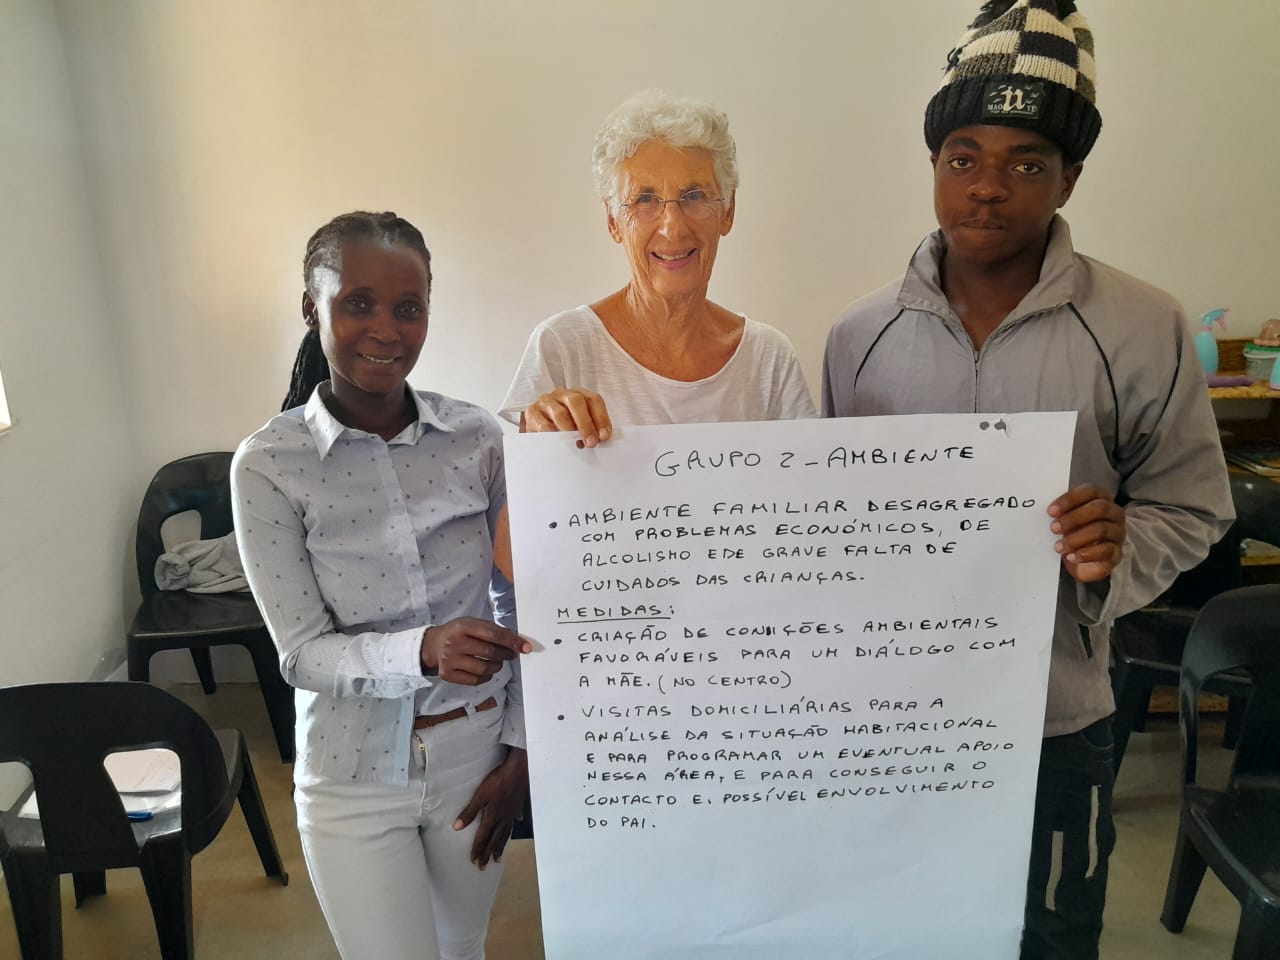 GRUPO 2 - AMBIENTE
• AMBIENTE FAMILIAR DESAGREGADO
COM PROBLEMAS ECONÓMICOS, DE
ALCOLISMO E DE GRAVE FALTA DE
CUIDADOS DAS CRIANÇAS.
MEDIDAS:
• CRIAÇÃO DE CONDIÇÕES AMBIENTAIS
FAVORÁVEIS PARA UM DIÁLOGO COM
A MÃE. (NO CENTRO)
• VISITAS DOMICILIÁRIAS PARA A
ANÁLISE DA SITUAÇÃO HABITACIONAL
E PARA PROGRAMAR UM EVENTUAL APOIO
NESSA ÁREA, E PARA CONSEGUIR O
CONTACTO E, POSSÍVEL ENVOLVIMENTO
DO PAI.